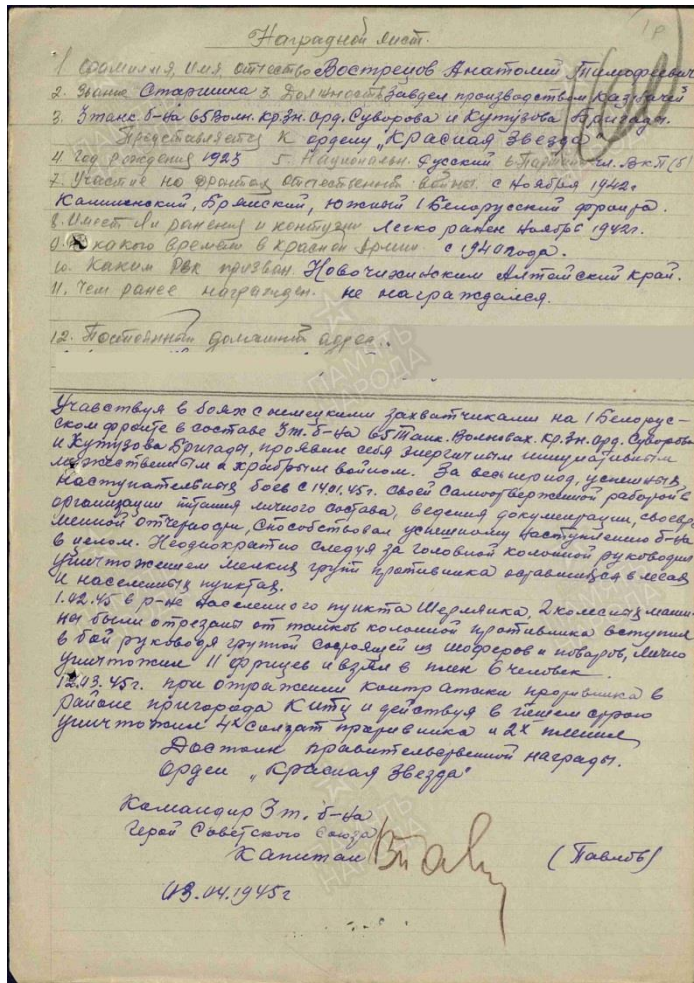 Наградной лист.
1 Фамилия, Имя, отчество Востресов Анатолий Тимофеевич
2. Звание Старшина 3. Должность завдел производством казначей
3. 3 танк б-на 65 Волн. Кр. Зн. орд. Суворова и Кутузова Бригады.
Представляется к ордену „Красная Звезда"
4. Год рождения 1923 5. Национальн. Русский 6. Партийн. чл. ВКП(б)
7. Участие на фронтах отечественной войны. с Ноября 1942г
Калининский, Брянский, южный 1 Белорусский фронта.
8. Имеет ли ранения и контузии Легко ранен Ноябрь 1942г.
9. с какого времени в Красной Армии. с 1940 года.
10. Каким РВК призван. Новочихинским Алтайский край.
11. Чем ранее награжден. не награждался.
12. Постоянный домашний адрес..
Учавствуя в боях с немецкими захватчиками на 1 Белорус-
ском фронте в составе 3 т. б-на 65 Танк. Волновах. кр. Зн. орд. Суворова
и Кутузова Бригады, проявил себя энергичным инициативным
мужественным и храбрым войном. За весь период, успешных
наступательных боев с 14.01.45г. своей самоотверженной работой в
организации питания личного состава, ведения документации, своевре
менной отчетности, способствовал успешному наступлению б-на
в целом. Неоднократно следуя за головной колонной руководил
уничтожением мелких групп противника оставшихся в лесах
и населенных пунктах.
1.02.45 в р-не населенного пункта 2 колесных маши-
ны были отрезаны от танков колонной противника вступил
в бой руководя группой состоящей из шоферов и поваров, лично
уничтожил 11 фрицев и взял в плен 6 человек.
12.03.45г. при отражении контратаки противника в
районе пригорода Китц и действуя в пешем строю
уничтожил 4х солдат противника и 2х пленил
Достоин правительственной награды.
орден „Красная Звезда"
Командир 3 т. б-на
Герой Советского Союза
Капитан (Павлов)
03.04.1945г
ПАМЯТЬ НАРОДА